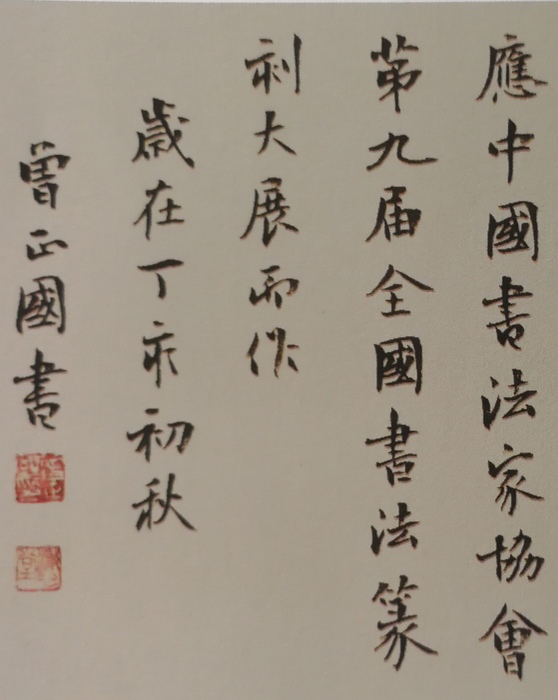 應中國書法家協會
第九届全國書法篆
刻大展而作
歲在丁亥初秋
曾正國書